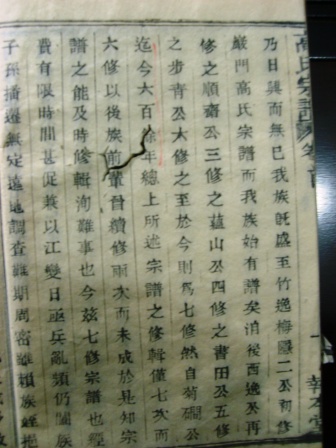 高氏宗譜
乃日異而無已我族旣盛至竹逸梅隱二公初修
嚴門高氏宗譜而我族始有譜矣消後西逸公再
修之順齋公三修之蘊山公四修之書田公五修
之步青公六修之至於今則爲七修然自菊磵公
迄今六百餘年總上所述宗譜之修輯僅七次而
六修以後族前輩嘗續修兩次而未成於是知宗
譜之能及時修輯洵難事也今茲七修宗譜也經
費有限時間甚促兼以江變日亟兵亂頻仍闔族
子孫播遷無定遠地調查難期周密雖賴族姪